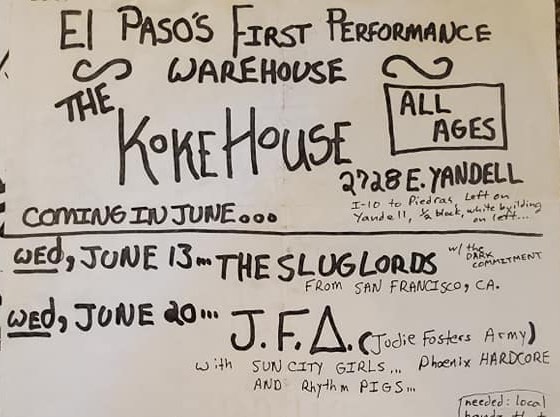 El PASO'S FIRST PERFORMANCE
WAREHOUSE
THE
KOKEHOUSE
ALL
AGES
2728 E. YANDELL
I-10 to Piedras, Left on
Yandell, ½ block, white building
on left...
COMING IN JUNE...
WED, JUNE 13... THE SLUGLORDS
w/ the
DARK
COMMITMENT
FROM SAN FRANCISCO, CA.
WED, JUNE 20... J.F.A. (Jodie Fosters Army)
with SUN CITY GIRLS... Phoenix HARDCORE
AND Rhythm PIGS...
needed: local